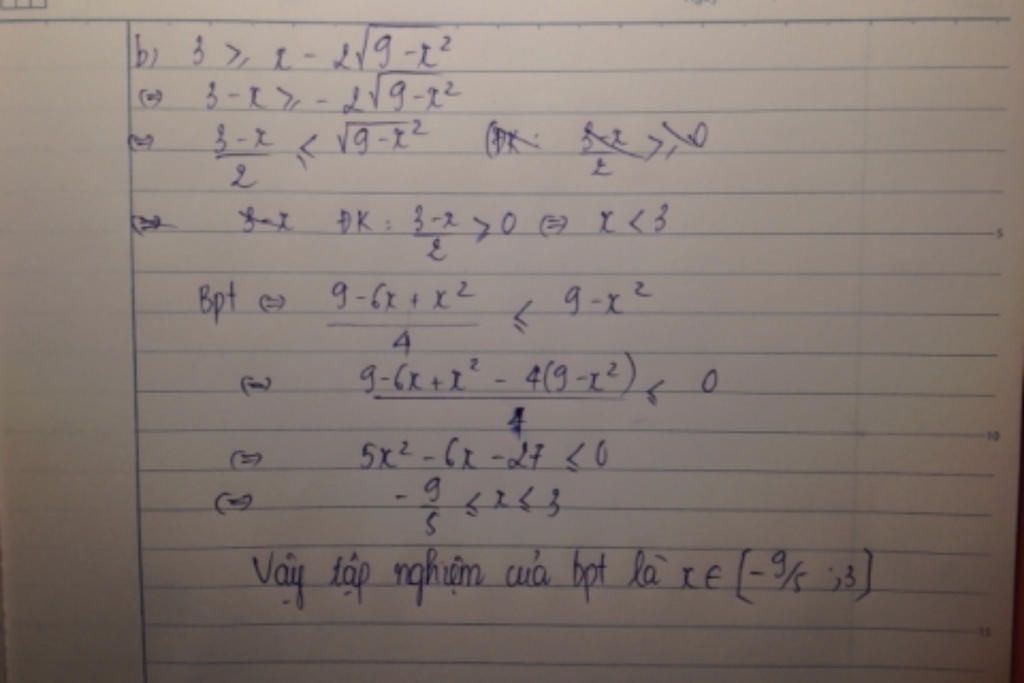 b) 3 ≥ x - 2√(9-x²)
⇔ 3-x ≥ -2√(9-x²)
⇔ (3-x)/2 ≤ √(9-x²) (ĐK: (3-x)/2 ≥ 0
⇔ 3-x ĐK: (3-x)/2 > 0 ⇔ x < 3
Bpt ⇔ (9-6x+x²)/4 ≤ 9-x²
⇔ (9-6x+x² - 4(9-x²))/4 ≤ 0
⇔ 5x² - 6x - 27 ≤ 0
⇔ -9/5 ≤ x ≤ 3
Vậy tập nghiệm của bpt là x ∈ [-9/5 ; 3]
5
10
15